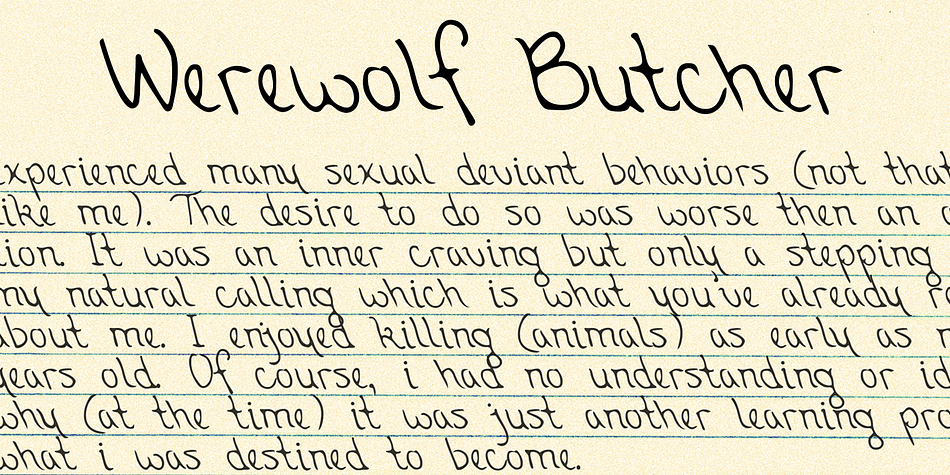 Werewolf Butcher
xperienced many sexual deviant behaviors (not that
ike me). The desire to do so was worse then an a
ion. It was an inner craving but only a stepping
my natural calling which is what you've already r
about me. I enjoyed killing (animals) as early as
years old. Of course, i had no understanding or id
why (at the time) it was just another learning pro
what i was destined to become.